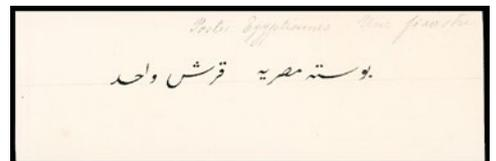 Postes Egyptiennes Une piastre
بوسته مصريه قرش واحد